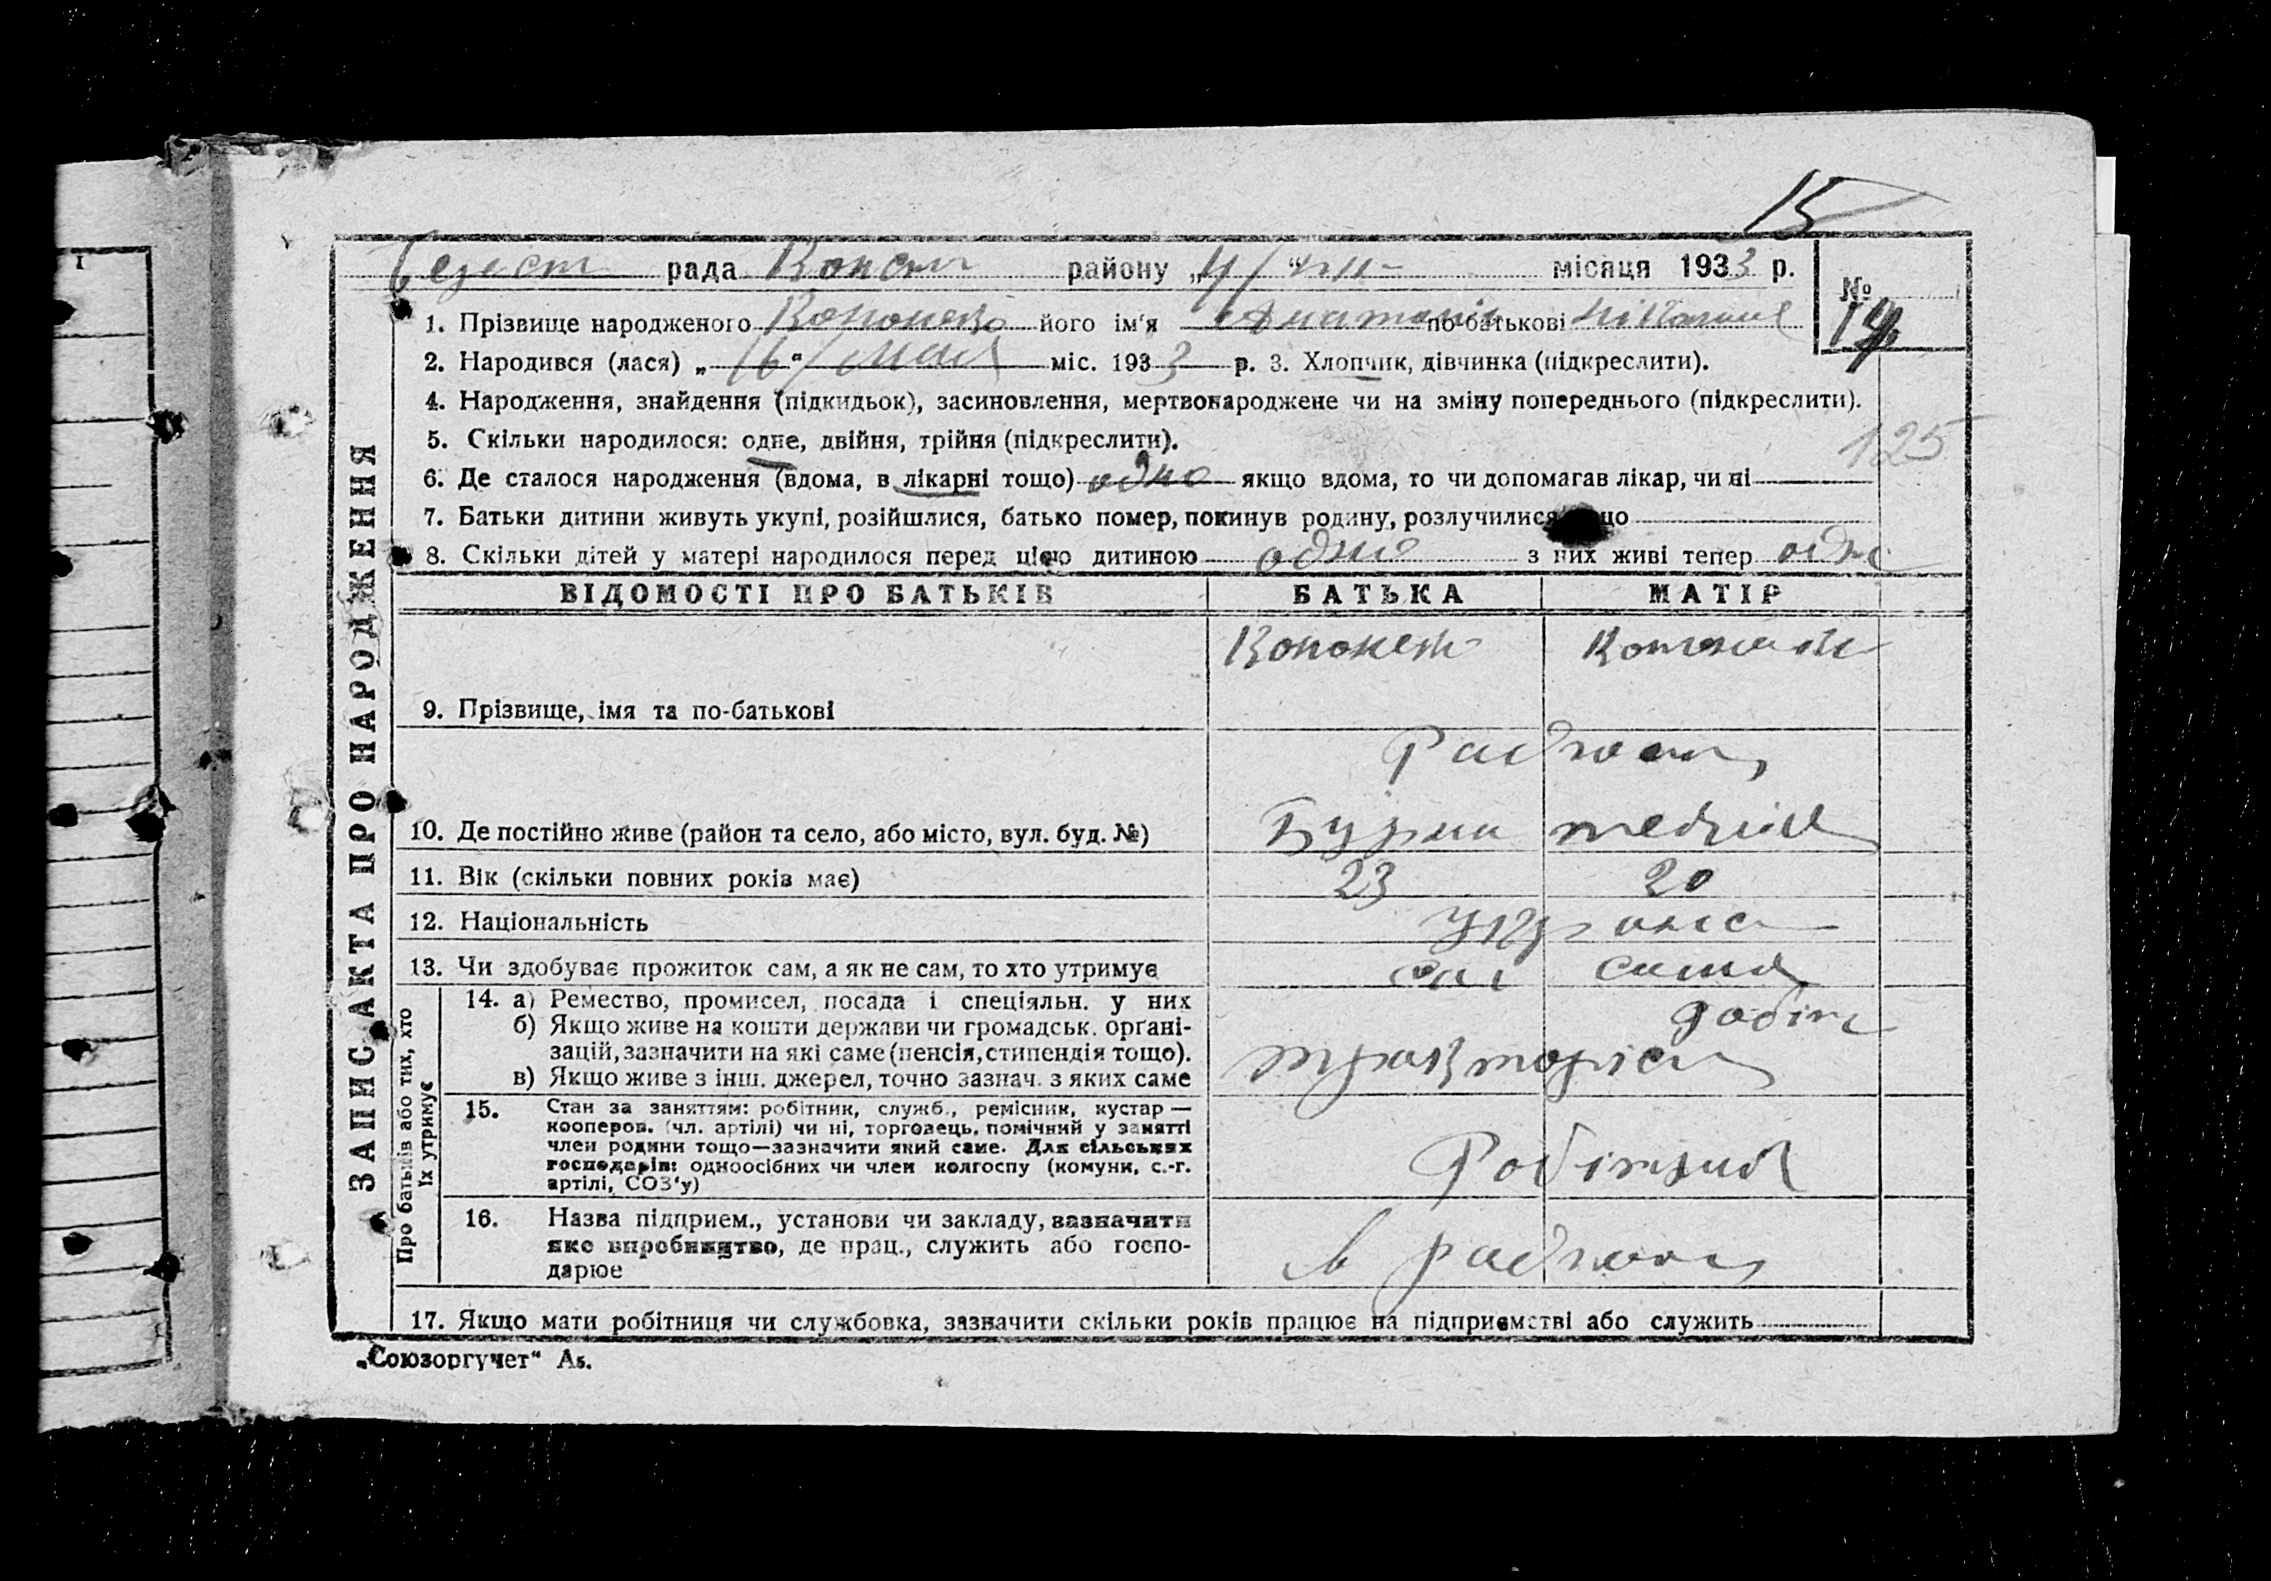 15
рада району „4/ місяця 1933 р.
№ 14
1. Прізвище народженого його ім'я Анатолій по-батькові
2. Народився (лася) „16“ мая міс. 1933 р. 3. Хлопчик, дівчинка (підкреслити).
4. Народження, знайдення (підкидьок), засиновлення, мертвонароджене чи на зміну попереднього (підкреслити).
125
5. Скільки народилося: одне, двійня, трійня (підкреслити).
6. Де сталося народження (вдома, в лікарні тощо) одно якщо вдома, то чи допомагав лікар, чи ні
7. Батьки дитини живуть укупі, розійшлися, батько помер, покинув родину, розлучилися
8. Скільки дітей у матері народилося перед цією дитиною одно з них живі тепер одно
ЗАПИС АКТА ПРО НАРОДЖЕННЯ
ВІДОМОСТІ ПРО БАТЬКІВ БАТЬКА МАТІР
9. Прізвище, імя та по-батькові
Радгосп
10. Де постійно живе (район та село, або місто, вул. буд. №)
11. Вік (скільки повних років має) 23 20
12. Національність
13. Чи здобуває прожиток сам, а як не сам, то хто утримує сам сама
Про батьків або тих, хто їх утримує
14. а) Ремество, промисел, посада і спеціяльн. у них
б) Якщо живе на кошти держави чи громадськ. орґані-
зацій, зазначити на які саме (пенсія, стипендія тощо).
в) Якщо живе з інш. джерел, точно зазнач. з яких саме
тракторист
15. Стан за заняттям: робітник, служб., ремісник, кустар —
кооперов. (чл. артілі) чи ні, торговець, помічний у занятті
член родини тощо—зазначити який саме. Для сільських
господарів: одноосібних чи член колгоспу (комуни, с.-г.
артілі, СОЗ'у)
Робітник
16. Назва підприєм., установи чи закладу, зазначити
яке виробництво, де прац., служить або госпо-
дарює
в радгоспі
17. Якщо мати робітниця чи службовка, зазначити скільки років працює на підприємстві або служить
„Союзоргучет“ А5.